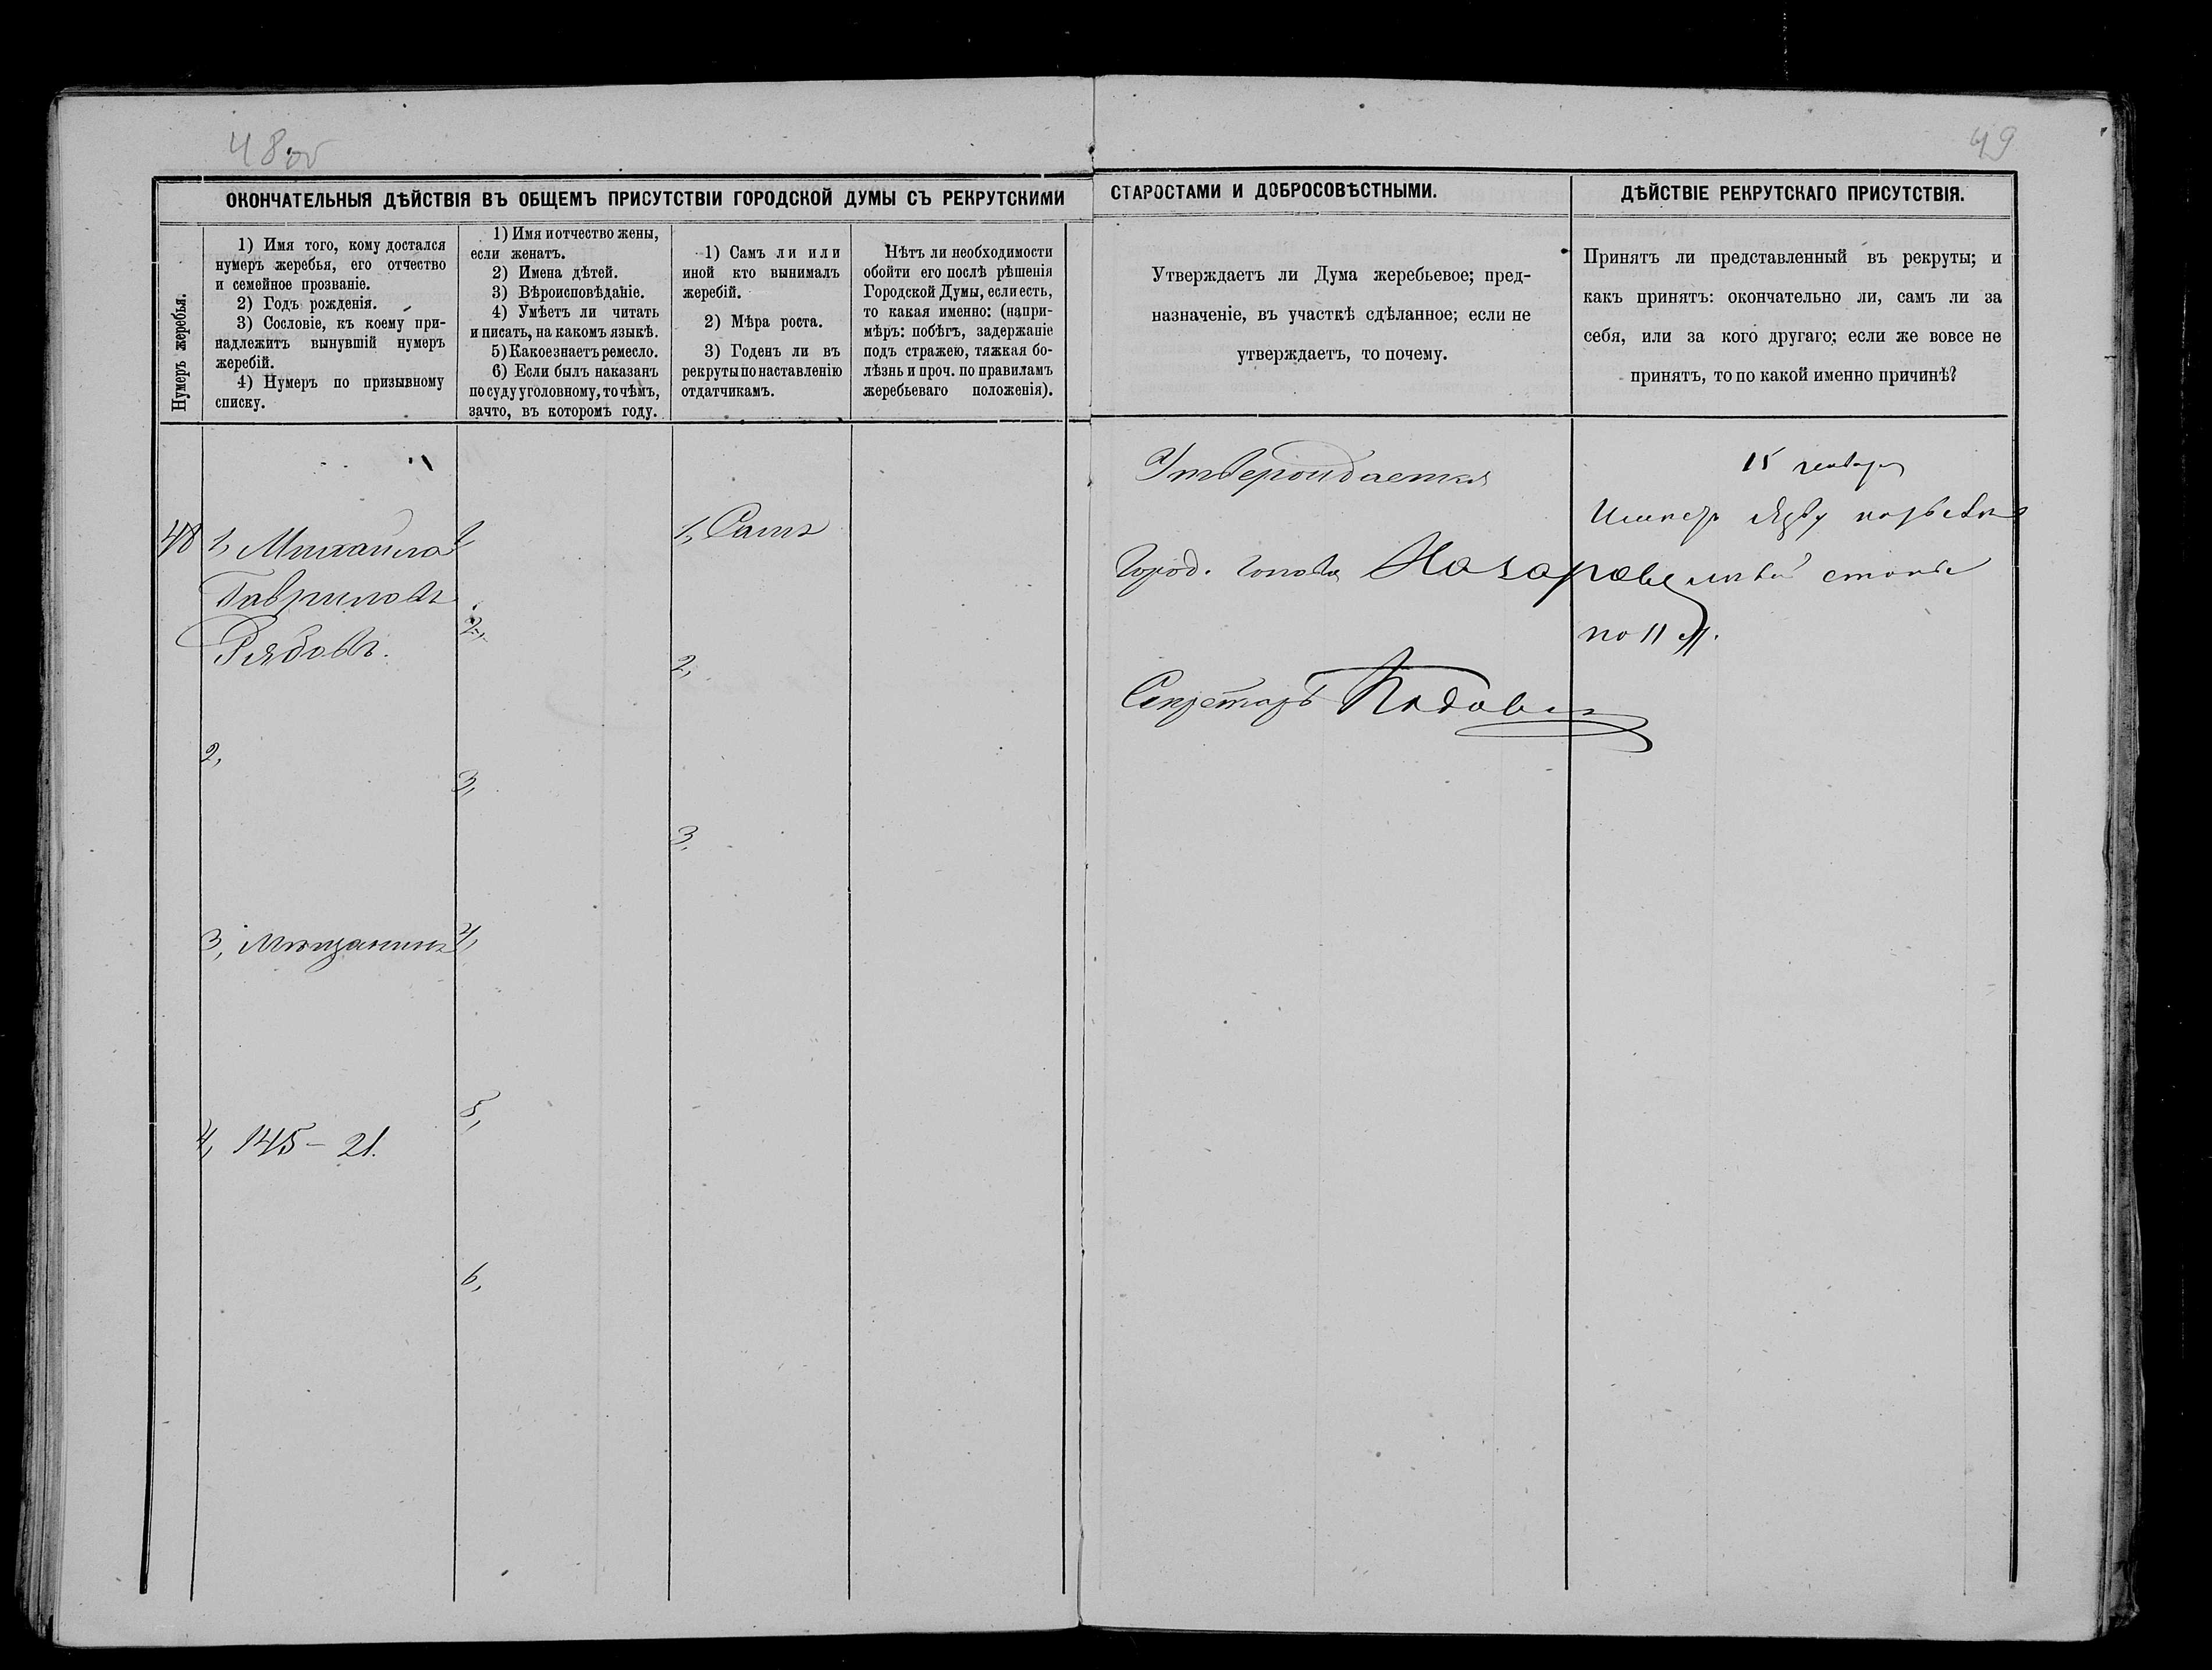 48 об
49
ОКОНЧАТЕЛЬНЫЯ ДѢЙСТВІЯ ВЪ ОБЩЕМЪ ПРИСУТСТВІИ ГОРОДСКОЙ ДУМЫ СЪ РЕКРУТСКИМИ
СТАРОСТАМИ И ДОБРОСОВѢСТНЫМИ.
ДѢЙСТВІЕ РЕКРУТСКАГО ПРИСУТСТВІЯ.
Нумеръ жеребья.
1) Имя того, кому достался
нумеръ жеребья, его отчество
и семейное прозваніе.
2) Годъ рожденія.
3) Сословіе, къ коему при-
надлежитъ вынувшій нумеръ
жеребій.
4) Нумеръ по призывному
списку.
1) Имя и отчество жены,
если женатъ.
2) Имена дѣтей.
3) Вѣроисповѣданіе.
4) Умѣетъ ли читать
и писать, на какомъ языкѣ.
5) Какое знаетъ ремесло.
6) Если былъ наказанъ
по суду уголовному, то чѣмъ,
за что, въ которомъ году.
1) Самъ ли или
иной кто вынималъ
жеребій.
2) Мѣра роста.
3) Годенъ ли въ
рекруты по наставленію
отдатчикамъ.
Нѣтъ ли необходимости
обойти его послѣ рѣшенія
Городской Думы, если есть,
то какая именно: (напри-
мѣръ: побѣгъ, задержаніе
подъ стражею, тяжкая бо-
лѣзнь и проч. по правиламъ
жеребьеваго положенія).
Утверждаетъ ли Дума жеребьевое; пред-
назначеніе, въ участкѣ сдѣланное; если не
утверждаетъ, то почему.
Принятъ ли представленный въ рекруты; и
какъ принятъ: окончательно ли, самъ ли за
себя, или за кого другаго; если же вовсе не
принятъ, то по какой именно причинѣ?
48
1, Михаила
Гавриловъ
Рябовъ.
2,
3, Мѣщанинъ
4, 145 – 21.
1,
2,
3,
4,
5,
6,
1, Самъ
2,
3,
Утверждается
Город. голова Назаровъ
Секретарь
15 января
стопѣ
по 11